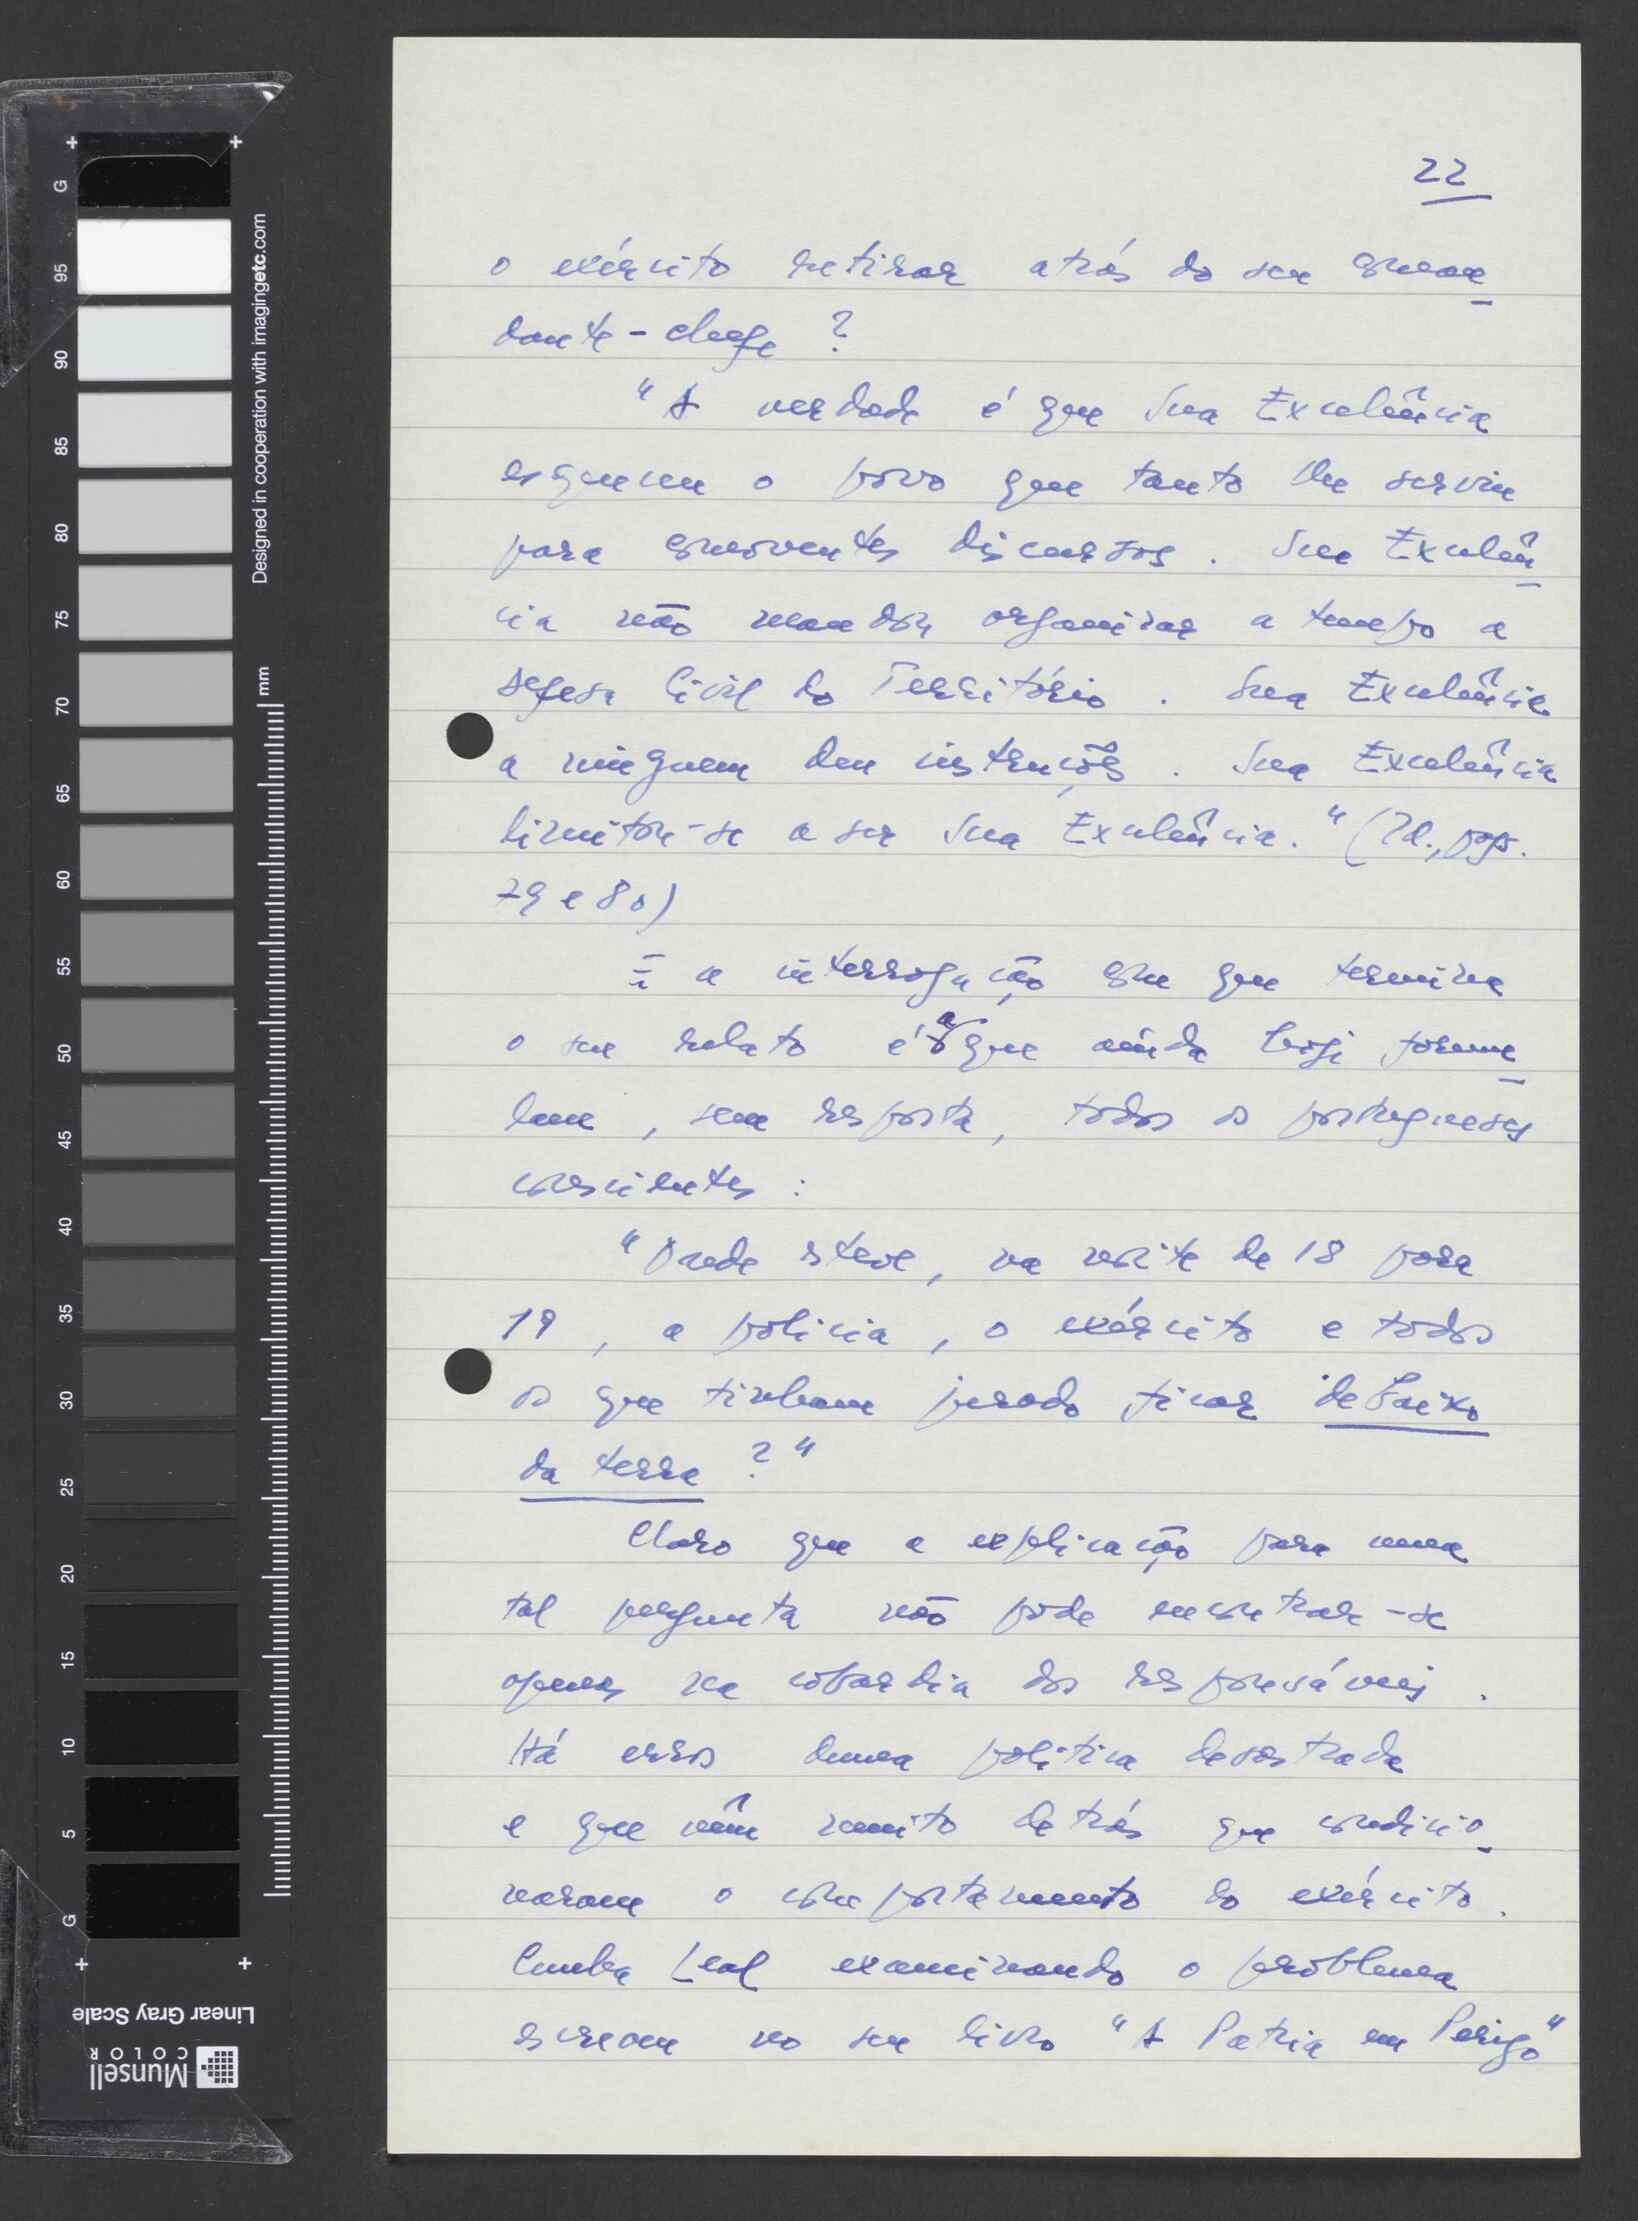 22
o exército retirar atrás do seu coman
dante-chefe ?
"A verdade é que Sua Excelência
esqueceu o povo que tanto lhe serviu
para comoventes discursos. Sua Excelên
cia não mandou organizar a tempo a
defesa civil do Território. Sua Excelência
a ninguem deu instruções. Sua Excelência
limitou-se a ser Sua Excelência." (Id., pgs.
79 e 80)
E a interrogação com que termina
o seu relato é a que ainda hoje formu
lam, sem resposta, todos os portugueses
conscientes :
"Onde esteve, na noite de 18 para
19, a policia, o exército e todos
os que tinham jurado ficar debaixo
da terra ?"
Claro que a explicação para uma
tal pergunta não pode encontrar-se
apenas na cobardia dos responsáveis.
Há erros duma politica desastrada
e que vêm muito detrás que condicio
naram o comportamento do exército.
Cunha Leal examinando o problema
escreveu no seu livro "A Patria em Perigo"
G 95 90 85 80 75 70 65 60 55 50 45 40 35 30 25 20 15 10 5 G
mm
Designed in cooperation with imagingetc.com
Linear Gray Scale
Munsell
COLOR